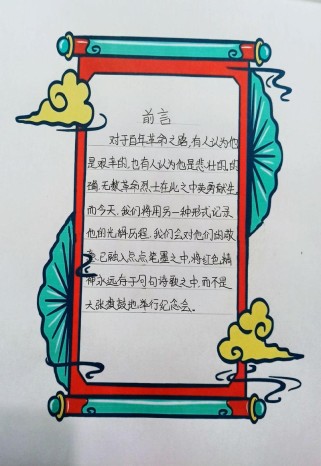 前言
对于百年革命之路,有人认为他
是艰辛的,也有人认为他是悲壮的,的
确,无数革命烈士在此之中英勇献生,
而今天,我们将用另一种形式记录
他的光辉历程,我们会对他们的敬
意,已融入点点笔墨之中,将红色精
神永远存于句句诗歌之中,而不是
大张旗鼓地举行纪念会。